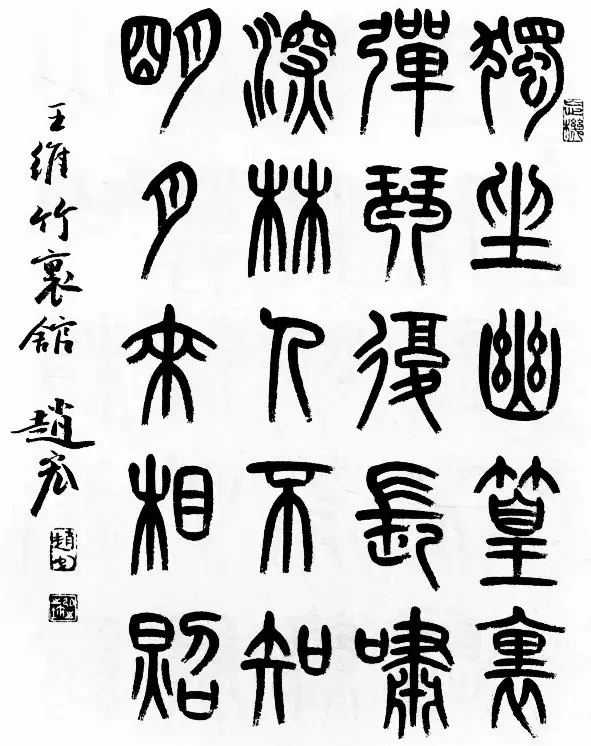 獨坐幽篁裏
彈琴復長嘯
深林人不知
明月來相照
王維竹裏館 趙宏